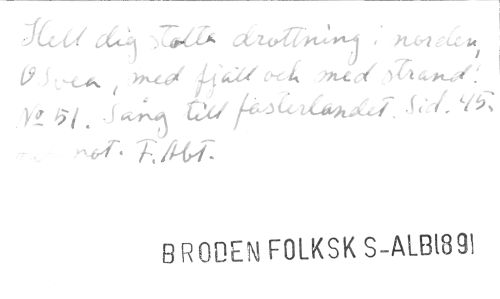 Hell dig stolta drottning i norden,
O Svea, med fjäll och med strand!
No 51. Sång till fosterlandet. Sid. 45.
not. F. Abt.
BRODEN FOLKSK S-ALB1891